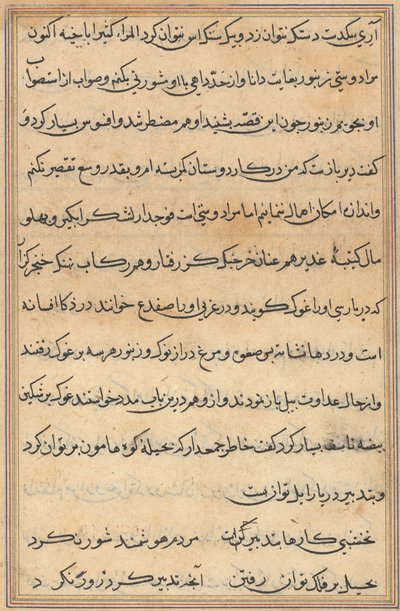 آری بیکدست دستک نتوان زد و بیک سنک اس نتوان کرد المراء کثیر باخیه اکنون
مرا دوستی زنبور بغایت دانا و از حد داهی با او شورتی بکنم و صواب از استصواب
او بجویم زنبور چون این قصه بشنید او هم مضطر شد و افسوس بسیار کرد و
کفت دیر باز ست که من در کار دوستان کمر بسته ام و بقدر وسع تقصیر نکنم
و اندازه امکان اهمال ننمایم اما مرا دوستی است فوجدار لشکر ابکیر و پهلو
مال کتیبهٔ غدیر هم عنان خرچنک کژ رفتار و هم رکاب نهنک خنجر گزار
که در پارسی او را غوک کویند و در عربی او را ضفدع خوانند در ذکا افسانه
است و در دها نشانه پس صعوه و مرغ دراز نوک و زنبور هر سه بر غوک رفتند
و از حال عداوت پیل باز نمودند و از و هم درین باب مدد خواستند غوک بر شکستن
بیضه تاسف بسیار کرد کفت خاطر جمع دار که بحیله کوه هامون بر توان کرد
و بتدبیر دریا را پل توان بست
نخشبی کارها بتدبیر است مردم هوشمند شور نکرد
بحیل بر فلک توان رفتن آنچه تدبیر کرد زور نکرد